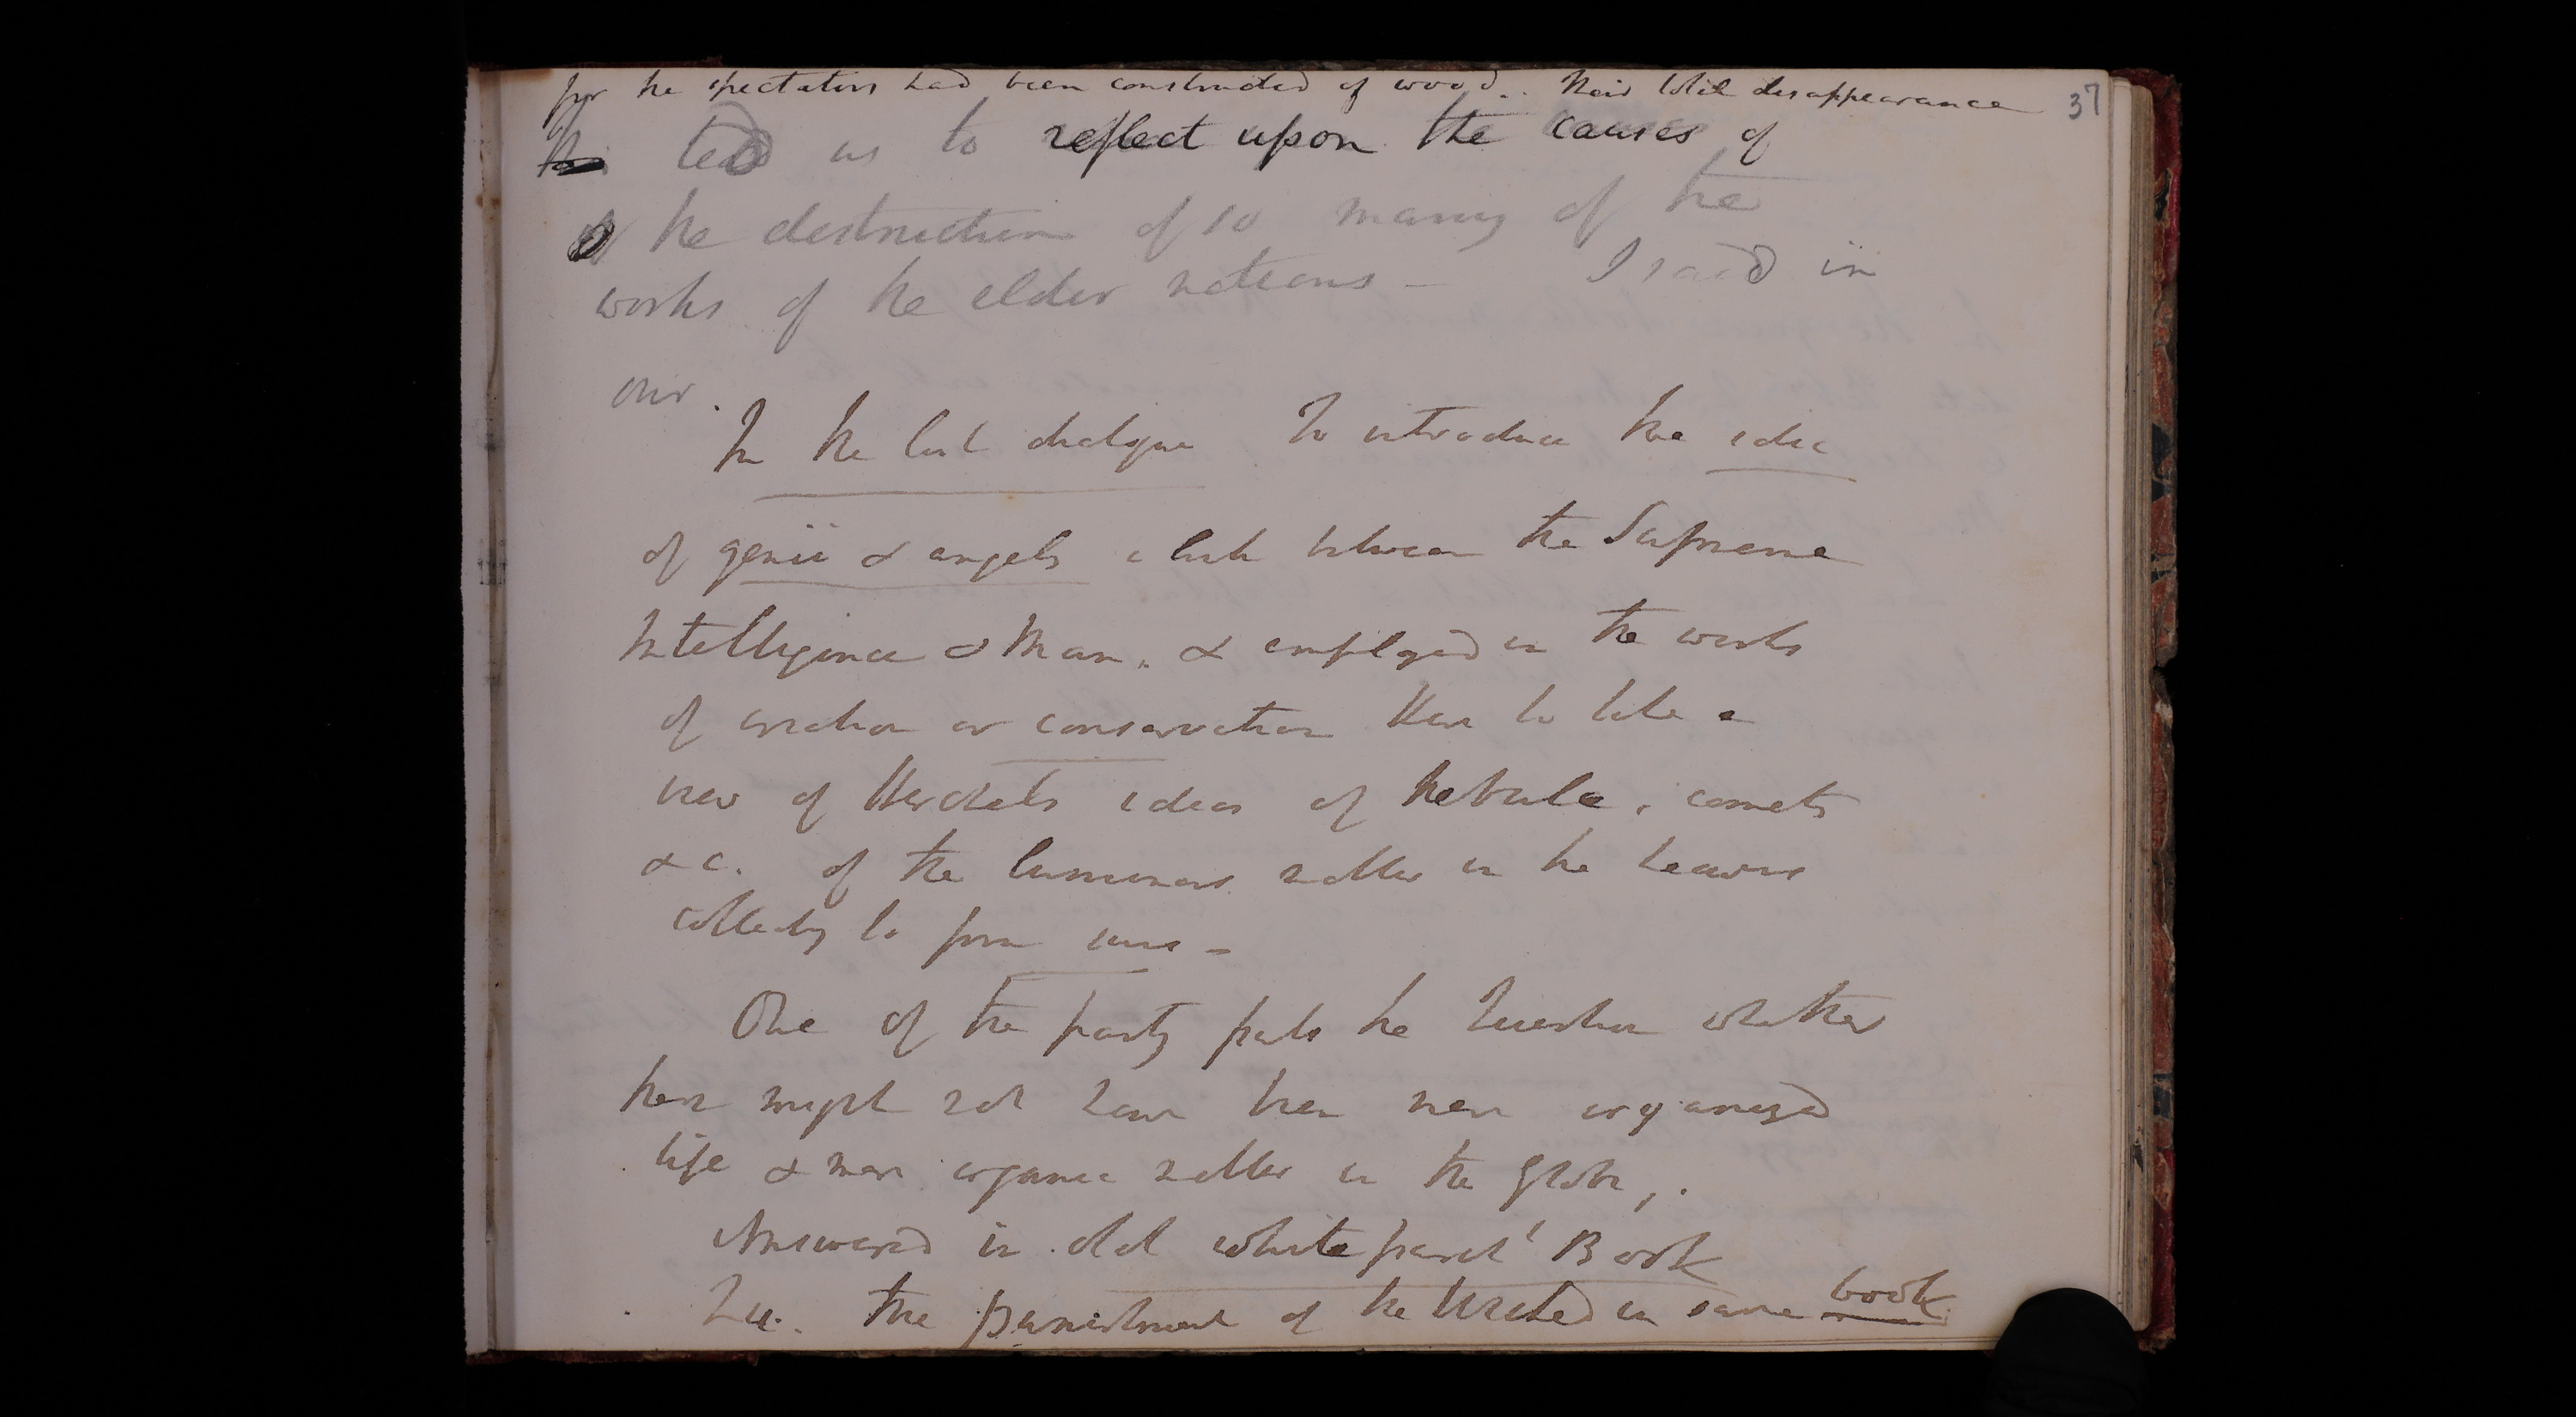 for the spectators had been constructed of wood. Their total disappearance
37
led us to reflect upon the causes of
the destruction of so many of the
works of the elder nations - I said in
our.
In the last dialogue To introduce the idea
of genii & angels a link between the Supreme
Intelligence & Man. & employed in the works
of creation or conservation Here to take a
view of Herschels ideas of Nebula, comets
&c. of the luminous matter in the heavens
collecting to form suns -
One of the party puts the Question whether
there might not have been new organized
life & new organic matter in the Globe,.
Answered in old white parcht Book
Qu. The punishment of the Wicked in same book